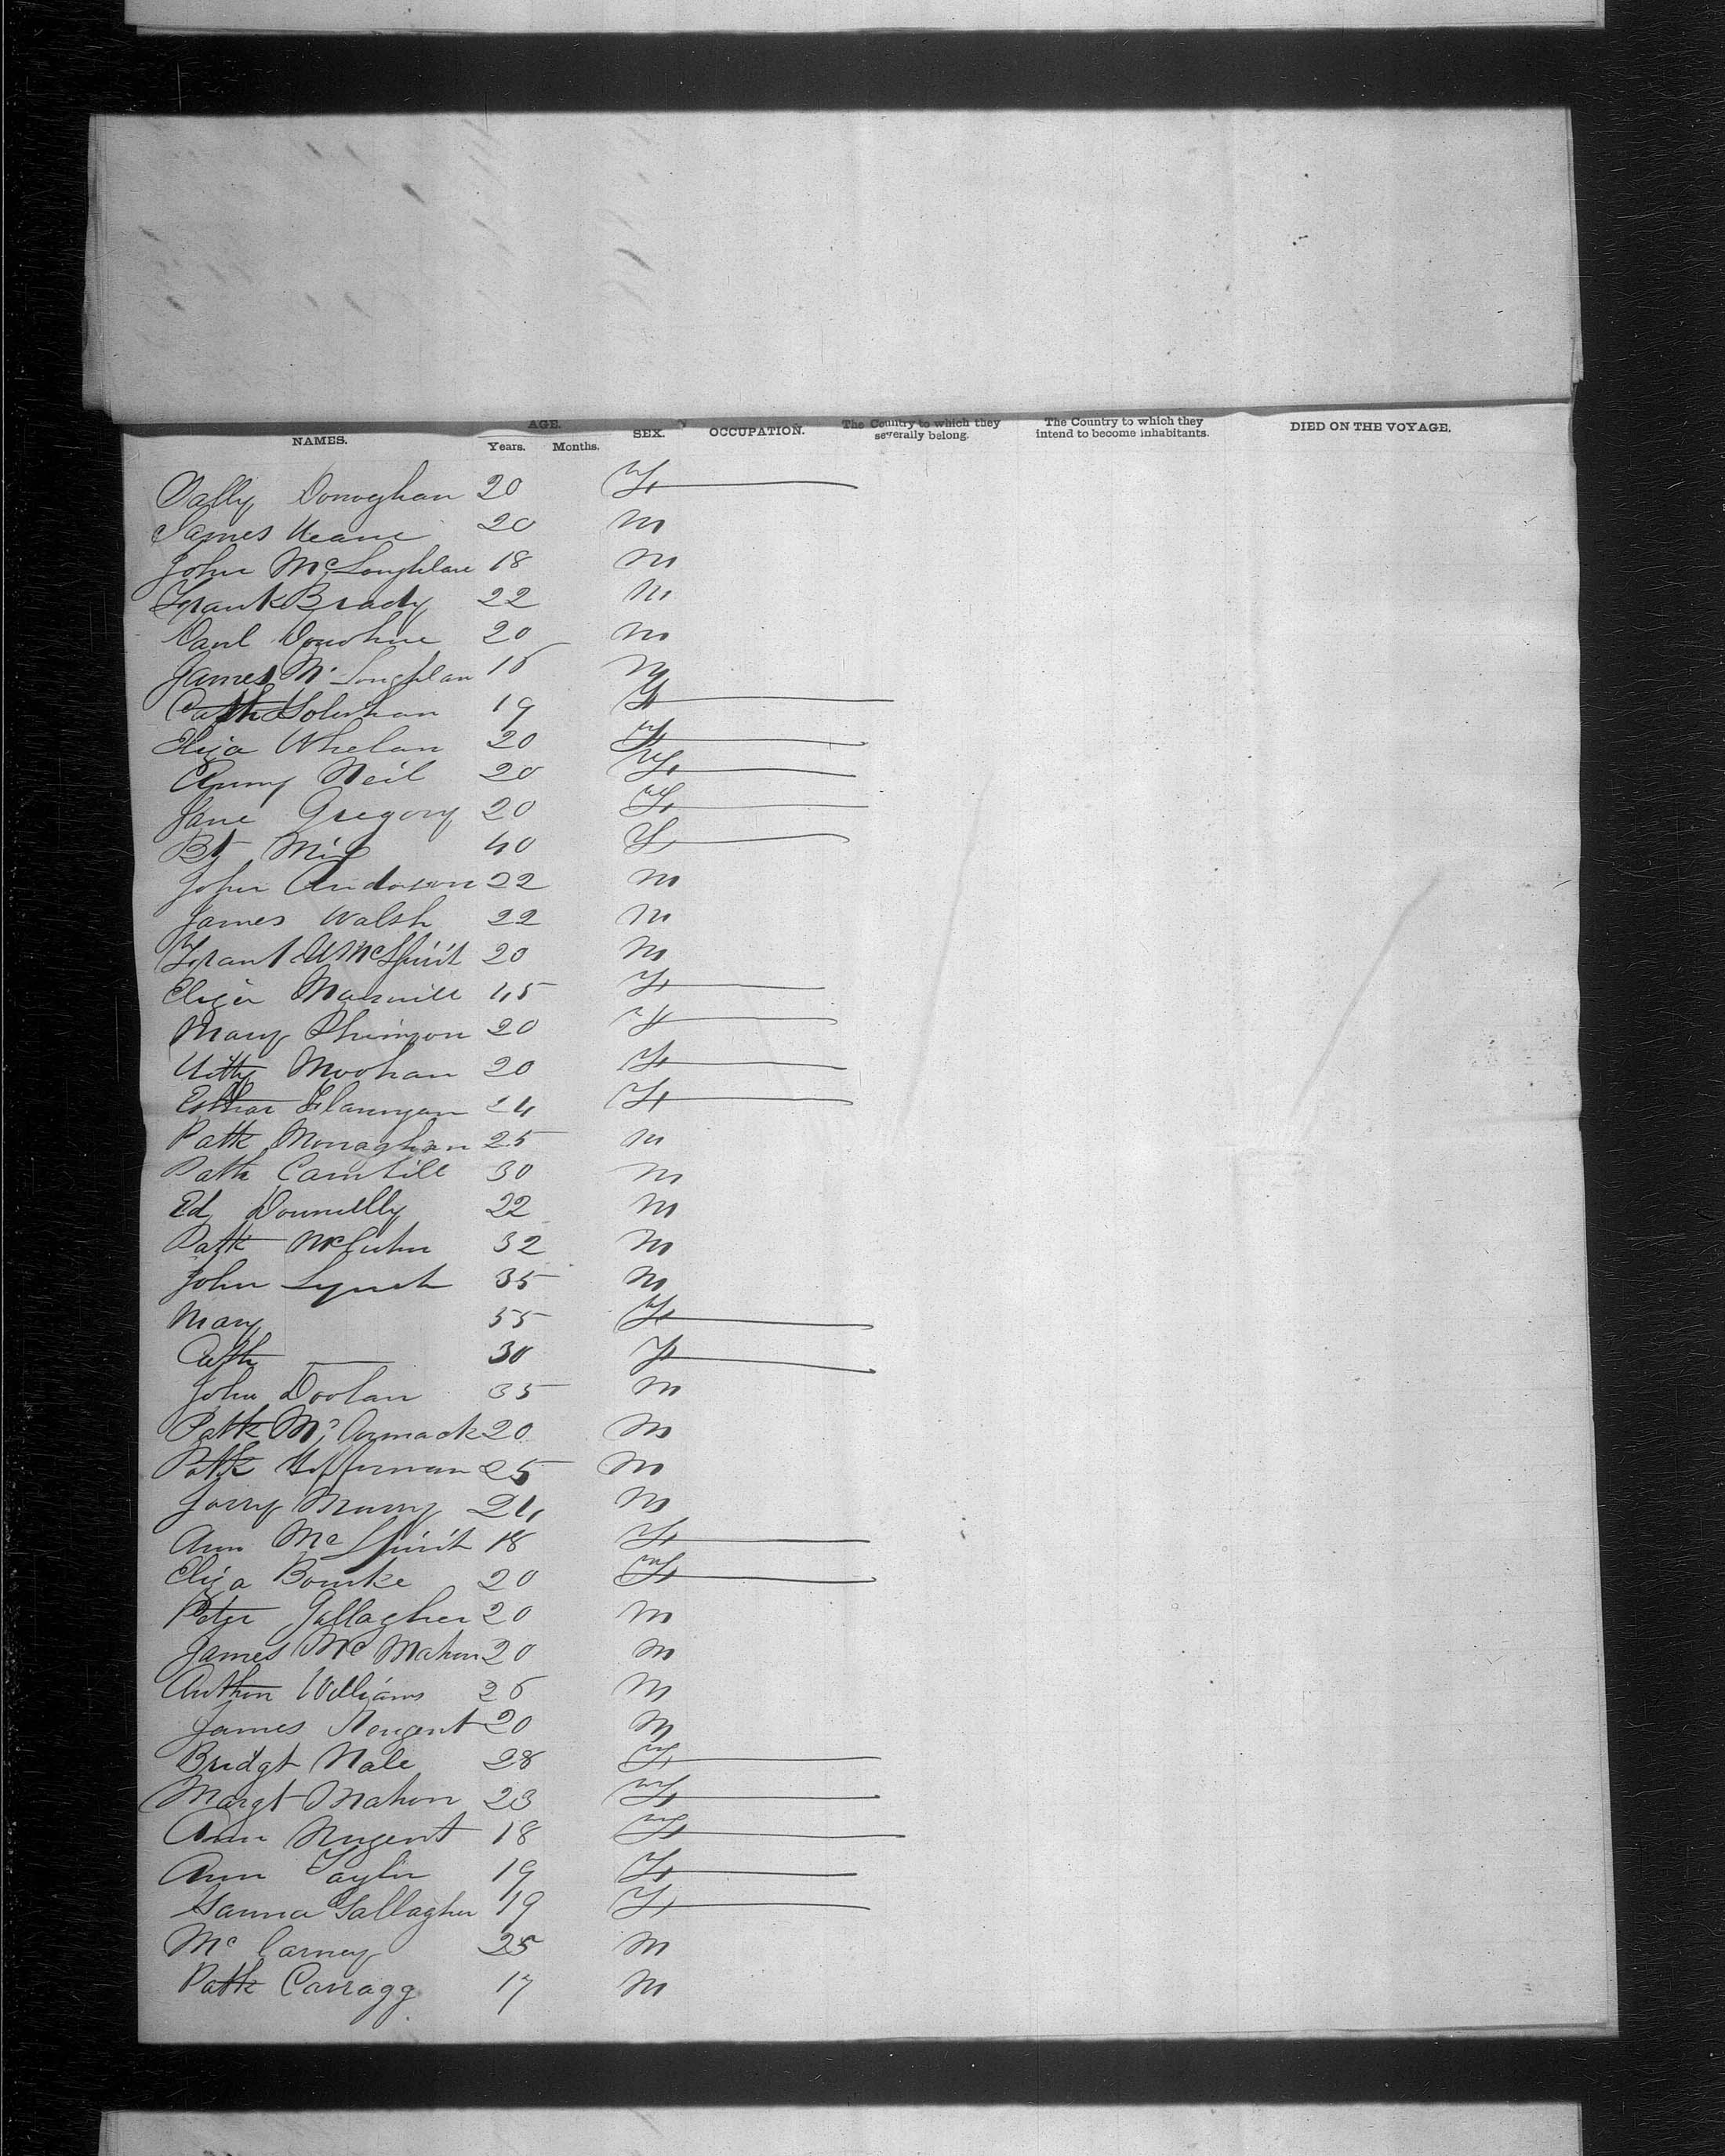 NAMES. AGE. Years. Months. SEX. OCCUPATION. The Country to which they severally belong. The Country to which they intend to become inhabitants. DIED ON THE VOYAGE.
Sally Donoghan 20 F
James Keane 20 M
John McLoughlan 18 M
Frank Brady 22 M
Danl Donohue 20 M
James McLoughlan 16 M
Cath Holohan 19 F
Eliza Whelan 20 F
Anny Neil 20 F
Jane Gregory 20 F
Bt 40 F
John Anderson 22 M
James Walsh 22 M
McSpirit 20 M
Eliza 45 F
Mary 20 F
Kitty Moohan 20 F
Esther Flannigan 24 F
Patk Monaghan 25 M
Patk Cantill 30 M
Ed Donnelly 22 M
Patk 32 M
John Lynch 35 M
Mary 55 F
Cath 30 F
John Doolan 35 M
Patk McCormack 20 M
Patk Heffernan 25 M
Jerry Murry 24 M
Ann McSpirit 18 F
Eliza Bourke 20 F
Peter Gallagher 20 M
James McMahon 20 M
Williams 26 M
James Nougent 20 M
Bridgt Nale 28 F
Margt Mahon 23 F
Ann Nugent 18 F
Ann Taylor 19 F
Hanna Gallagher 19 F
Mc Carney 25 M
Patk Carragg 17 M